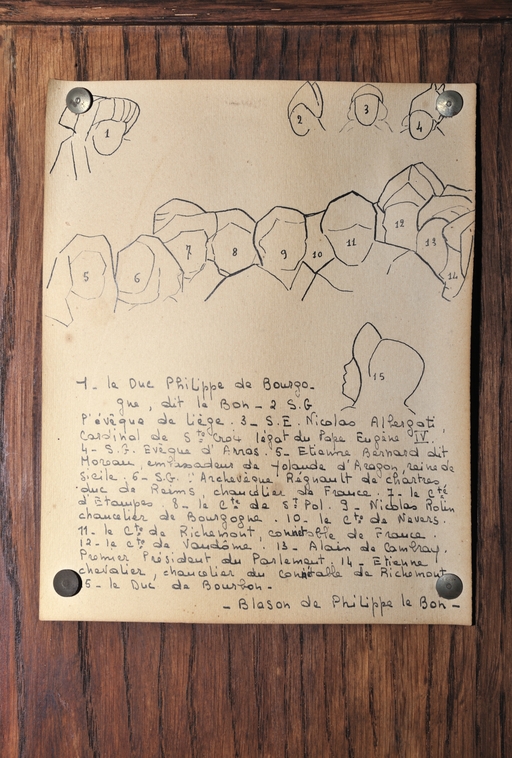 1
2
3
4
5
6
7
8
9
10
11
12
13
14
15
1- le Duc Philippe de Bourgo-
gne, dit le Bon - 2 S.G
l'évêque de Liège. 3- S.E. Nicolas Albergati
Cardinal de Ste Croix légat du Pape Eugène IV.
4- S.G. Evêque d'Arras. 5- Etienne Bernard dit
Moreau, embassadeur de Yolande d'Aragon, reine de
Sicile. 6- S.G. Archevêque Régnault de chartres,
duc de Reims, chancelier de France. 7- le cte
d'Etampes. 8- le Cte de St Pol. 9- Nicolas Rolin
chancelier de Bourgogne. 10- le Cte de Nevers.
11- le Cte de Richemont, connétable de France.
12- le cte de Vandôme. 13- Alain de Cambray,
Premier Président du Parlement. 14- Etienne
chevalier, chancelier du connétable de Richemont
15- le Duc de Bourbon-
- Blason de Philippe le Bon -